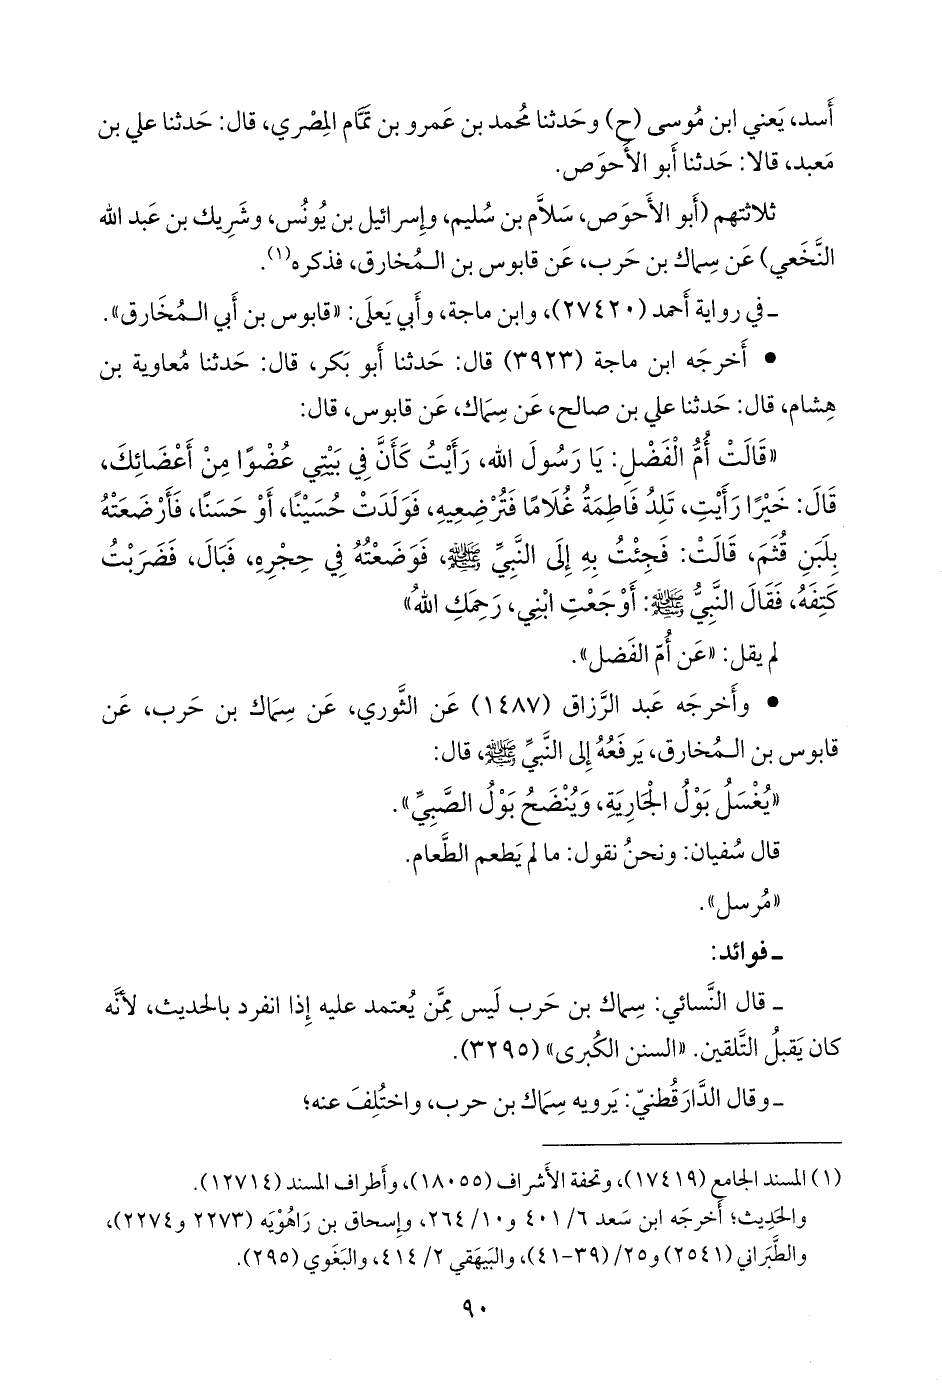 أَسد، يَعني ابن مُوسى (ح) وحَدثنا مُحمد بن عَمرو بن تَمَّام المِصْري، قال: حَدثنا علي بن
مَعبد، قالا: حَدثنا أَبو الأَحوَص.
ثلاثتهم (أَبو الأَحوَص، سَلاَّم بن سُليم، وإِسرائيل بن يُونُس، وشَرِيك بن عَبد الله
النَّخَعي) عَن سِماك بن حَرب، عَن قابوس بن الـمُخارق، فذكره(١).
ـ في رواية أَحمد (٢٧٤٢٠)، وابن ماجة، وأَبي يَعلَى: «قابوس بن أَبي الـمُخَارق».
• أَخرجَه ابن ماجة (٣٩٢٣) قال: حَدثنا أَبو بَكر، قال: حَدثنا مُعاوية بن
هِشام، قال: حَدثنا علي بن صالح، عَن سِمَاك، عَن قابوس، قال:
«قَالَتْ أُمُّ الْفَضْلِ: يَا رَسُولَ الله، رَأَيْتُ كَأَنَّ فِي بَيْتِي عُضْوًا مِنْ أَعْضَائِكَ،
قَالَ: خَيْرًا رَأَيْتِ، تَلِدُ فَاطِمَةُ غُلَامًا فَتُرْضِعِيهِ، فَوَلَدَتْ حُسَيْنًا، أَوْ حَسَنًا، فَأَرْضَعَتْهُ
بِلَبَنِ قُثَمَ، قَالَتْ: فَجِئْتُ بِهِ إِلَى النَّبِيِّ ﷺ، فَوَضَعْتُهُ فِي حِجْرِهِ، فَبَالَ، فَضَرَبْتُ
كَتِفَهُ، فَقَالَ النَّبِيُّ ﷺ: أَوْجَعْتِ ابْنِي، رَحِمَكِ اللهُ»
لم يقل: «عَن أُمِّ الفَضل».
• وأَخرجَه عَبد الرَّزاق (١٤٨٧) عَن الثَّوري، عَن سِمَاك بن حَرب، عَن
قابوس بن الـمُخارق، يَرفَعُهُ إلى النَّبيِّ ﷺ، قال:
«يُغْسَلُ بَوْلُ الْجَارِيَةِ، وَيُنْضَحُ بَوْلُ الصَّبِيِّ».
قال سُفيان: ونحنُ نقول: ما لم يَطعم الطَّعام.
«مُرسل».
ـ فوائد:
ـ قال النَّسائي: سِماك بن حَرب لَيس مِمَّن يُعتمد عليه إِذا انفرد بالحديث، لأنَّه
كان يَقبلُ التَّلقين. «السنن الكُبرى» (٣٢٩٥).
ـ وقال الدَّارَقُطنيّ: يَرويه سِمَاك بن حرب، واختُلِفَ عنه؛
(١) المسند الجامع (١٧٤١٩)، وتحفة الأشراف (١٨٠٥٥)، وأَطراف المسند (١٢٧١٤).
والحَدِيث؛ أَخرجَه ابن سَعد ٦/ ٤٠١ و١٠/ ٢٦٤، وإِسحاق بن رَاهُوْيَه (٢٢٧٣ و٢٢٧٤)،
والطَّبَراني (٢٥٤١) و٢٥/ (٣٩-٤١)، والبَيهَقي ٢/ ٤١٤، والبَغَوي (٢٩٥).
٩٠